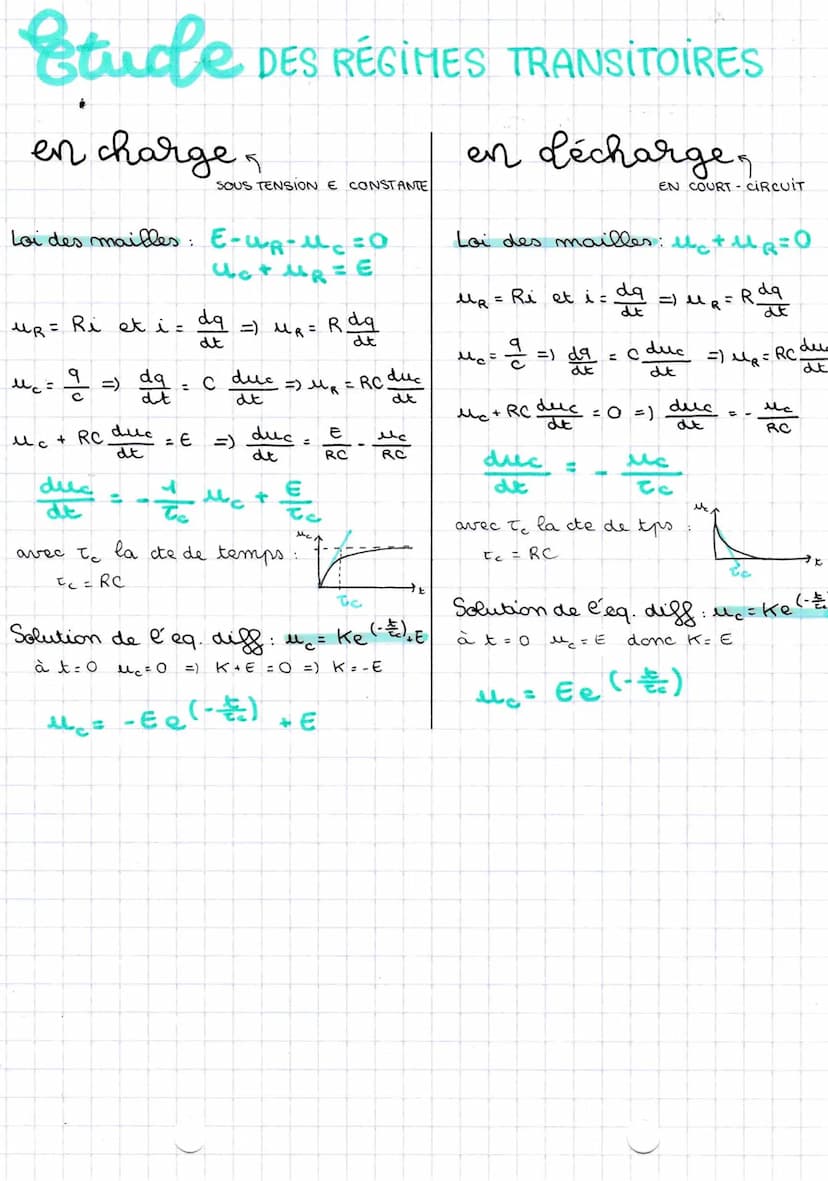 Etude DES RÉGIMES TRANSITOIRES
en charge
SOUS TENSION E CONSTANTE
Loi des mailles : E - u_R - u_c = 0
u_c + u_R = E
u_R = Ri et i = dq/dt => u_R = R dq/dt
u_c = q/c => dq/dt = C du_c/dt => u_R = RC du_c/dt
u_c + RC du_c/dt = E => du_c/dt = E/RC - u_c/RC
du_c/dt = - 1/τ_c u_c + E/τ_c
avec τ_c la cte de temps :
τ_c = RC
u_c
t
τ_c
Solution de l'eq. diff : u_c = Ke^(-t/τ_c) + E
à t = 0 u_c = 0 => K + E = 0 => K = -E
u_c = -E e^(-t/τ_c) + E
en décharge
EN COURT-CIRCUIT
Loi des mailles : u_c + u_R = 0
u_R = Ri et i = dq/dt => u_R = R dq/dt
u_c = q/c => dq/dt = C du_c/dt => u_R = RC du_c/dt
u_c + RC du_c/dt = 0 => du_c/dt = - u_c/RC
du_c/dt = - u_c/τ_c
avec τ_c la cte de tps :
τ_c = RC
u_c
t
τ_c
Solution de l'eq. diff : u_c = Ke^(-t/
à t = 0 u_c = E donc K = E
u_c = E e^(-t/τ_c)